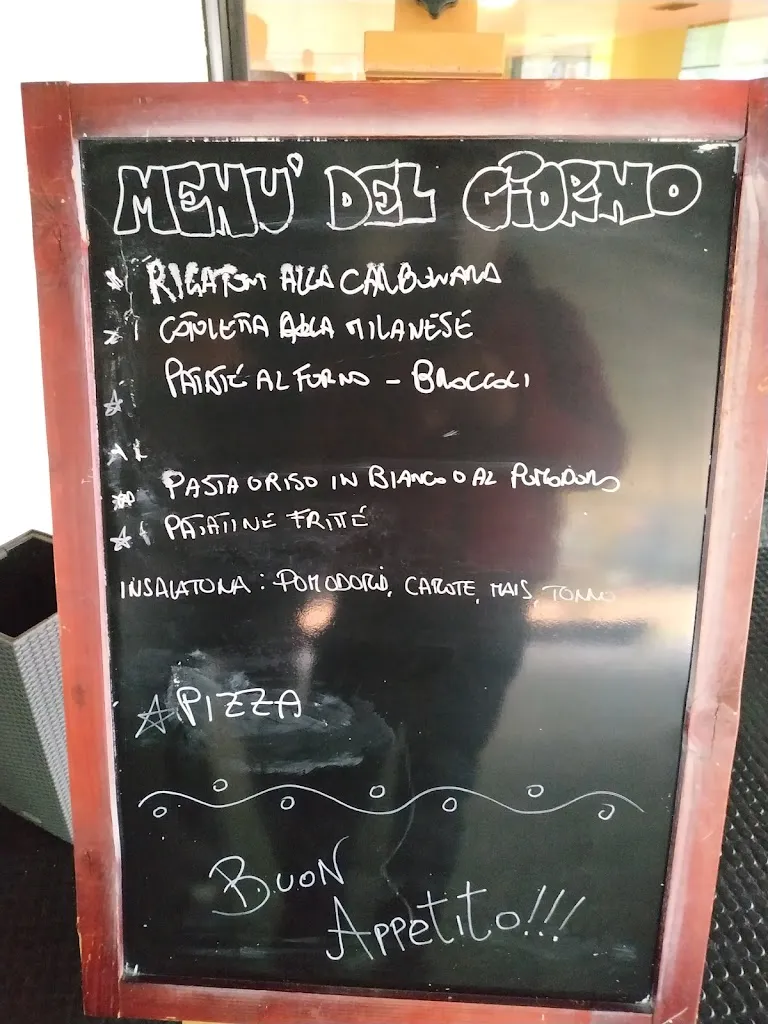 MENU' DEL GIORNO
RIGATONI ALLA CARBONARA
COTOLETTA ALLA MILANESE
PATATE AL FORNO - BROCCOLI
PASTA O RISO IN BIANCO O AL POMODORO
PATATINE FRITTE
INSALATONA: POMODORI, CAROTE, MAIS, TONNO
PIZZA
BUON
APPETITO!!!